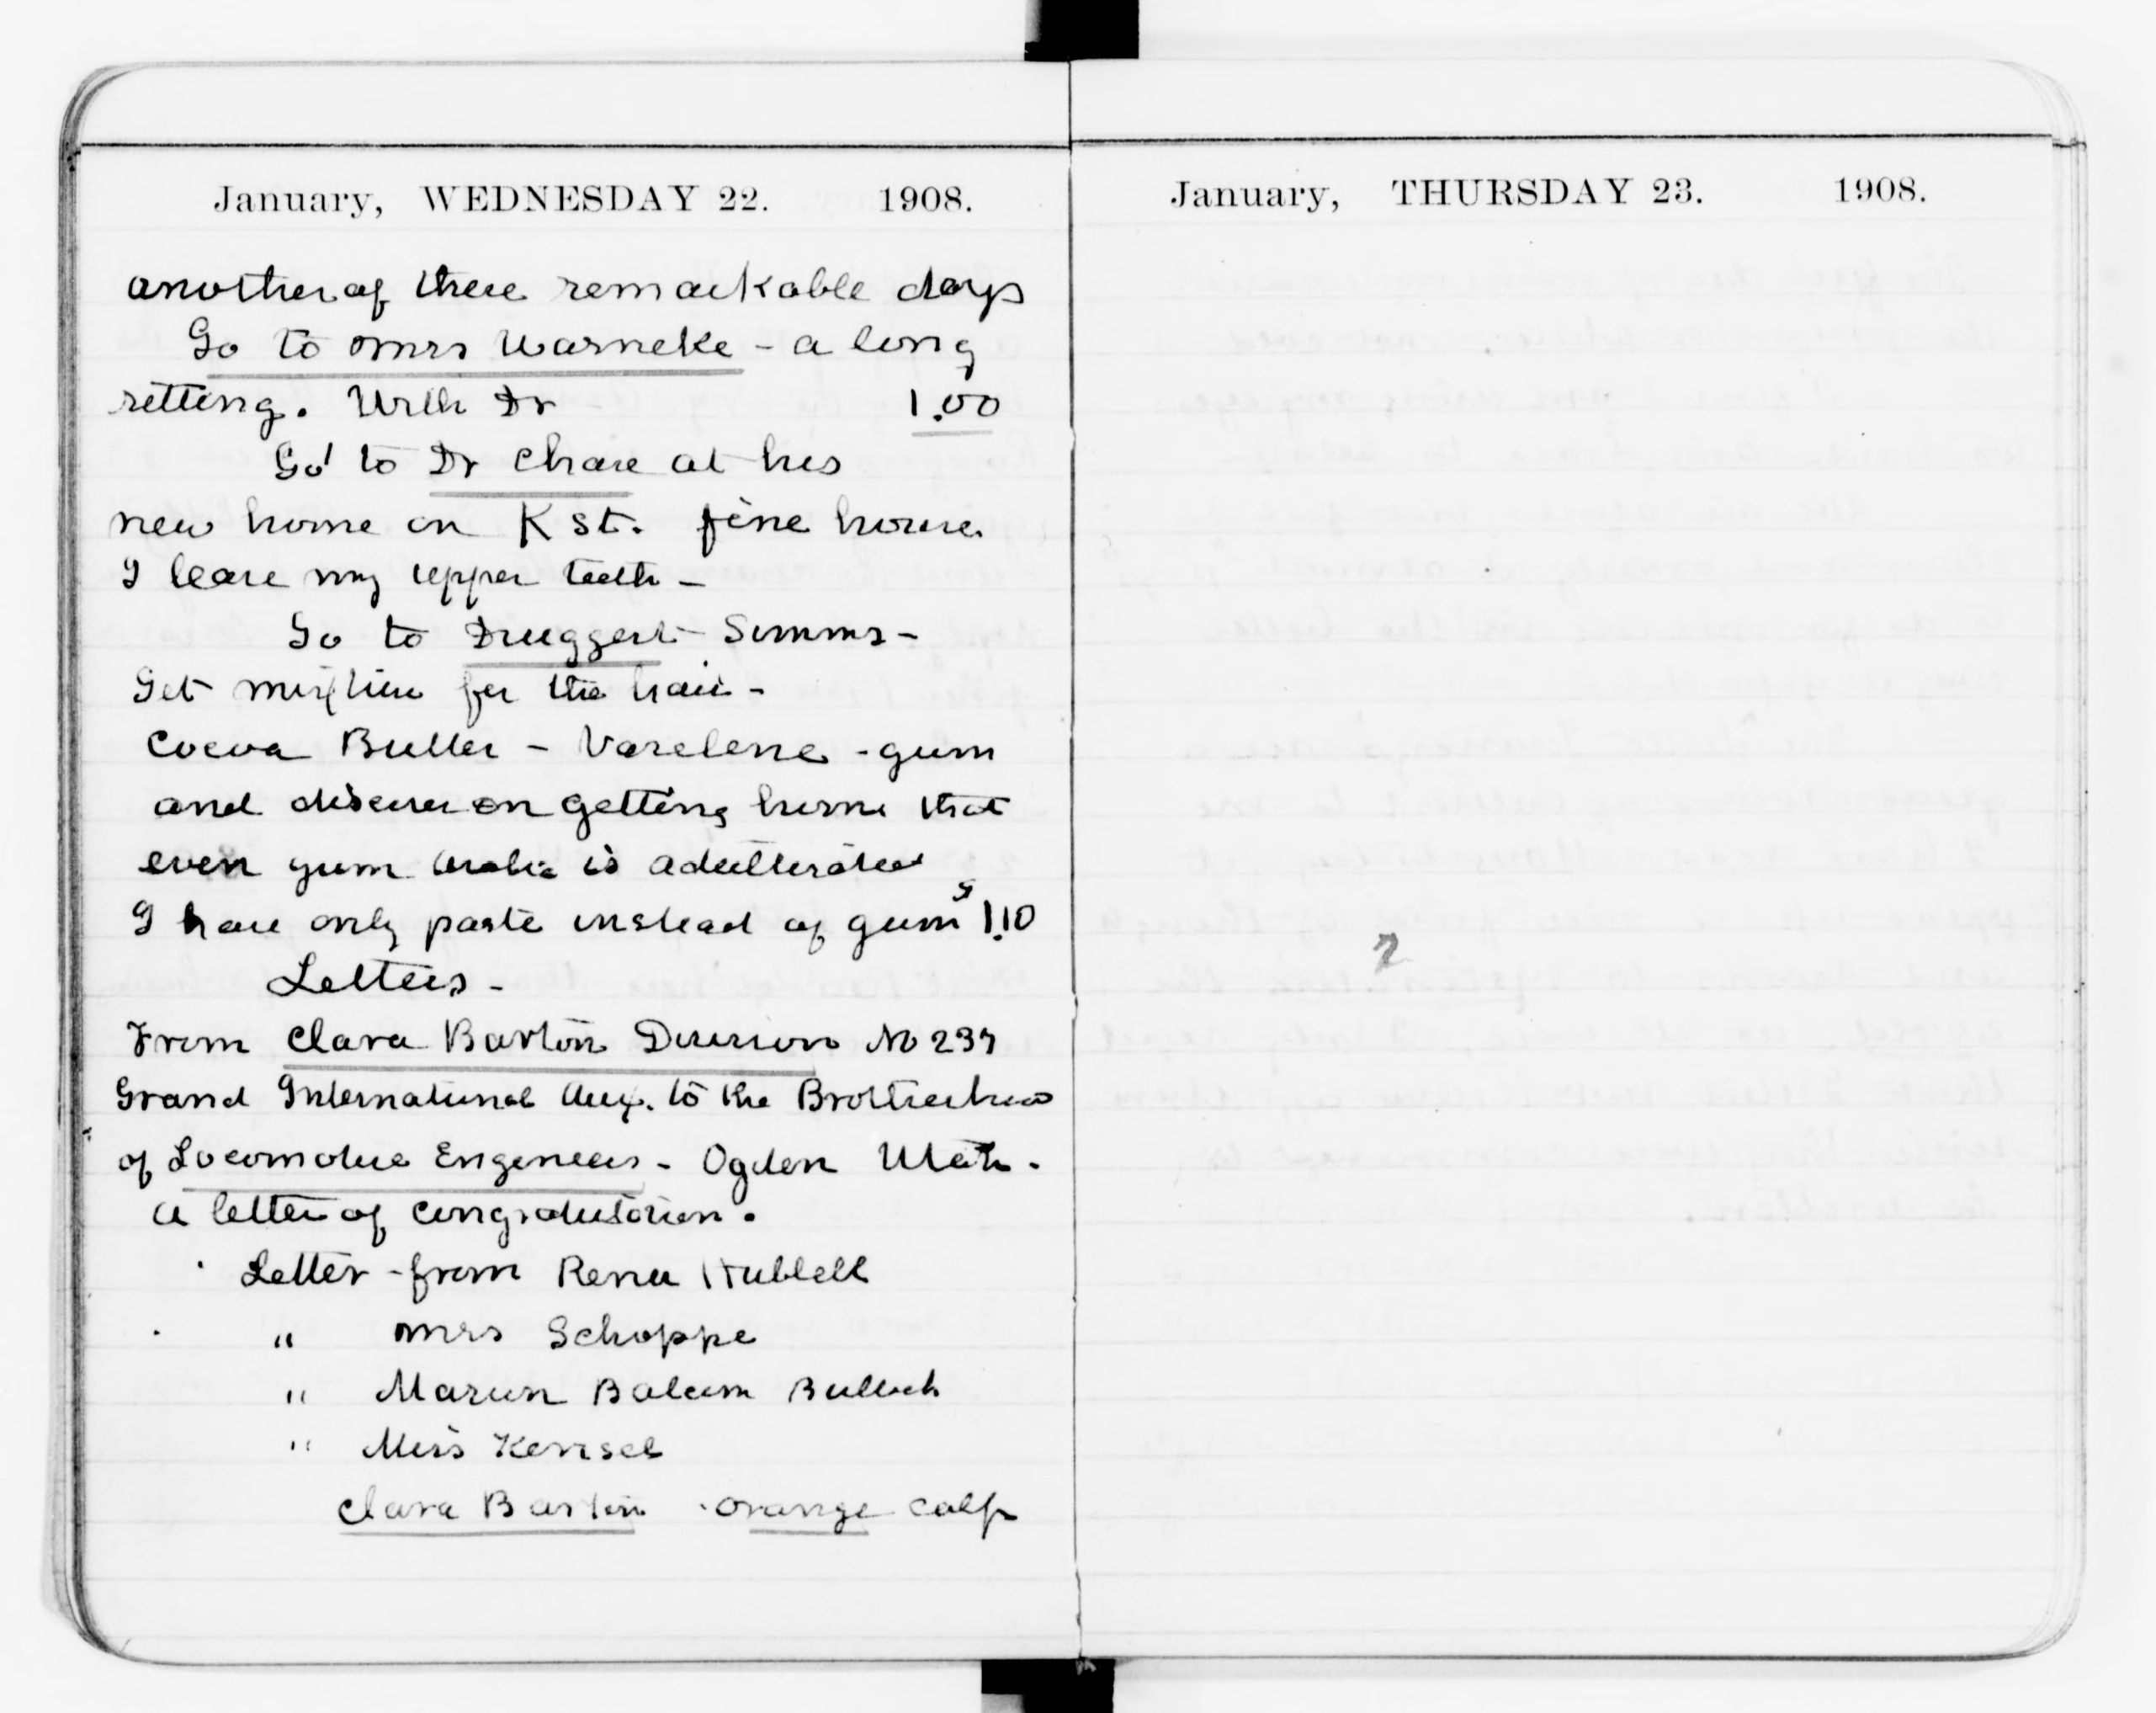 January, WEDNESDAY 22. 1908.
another of these remarkable days
Go to Mrs Warneke - a long
sitting. With Dr 1.00
Go to Dr Chase at his
new home on K St. fine house.
I leave my upper teeth -
Go to Druggest - Simms -
Get mixture for the hair -
Cocoa Butter - Vaselene - gum
and discover on getting home that
even gum arabic is adulterated
I have only paste instead of gum 1.10
Letters -
From Clara Barton Division No 237
Grand International Aux. to the Brotherhood
of Locomotive Engineers - Ogden Utah.
a letter of congratulation.
Letter - from Rena Hubbell
" Mrs Schoppe
" Bullock
" Miss Kensel
Clara Barton - Orange Calf
January, THURSDAY 23. 1908.